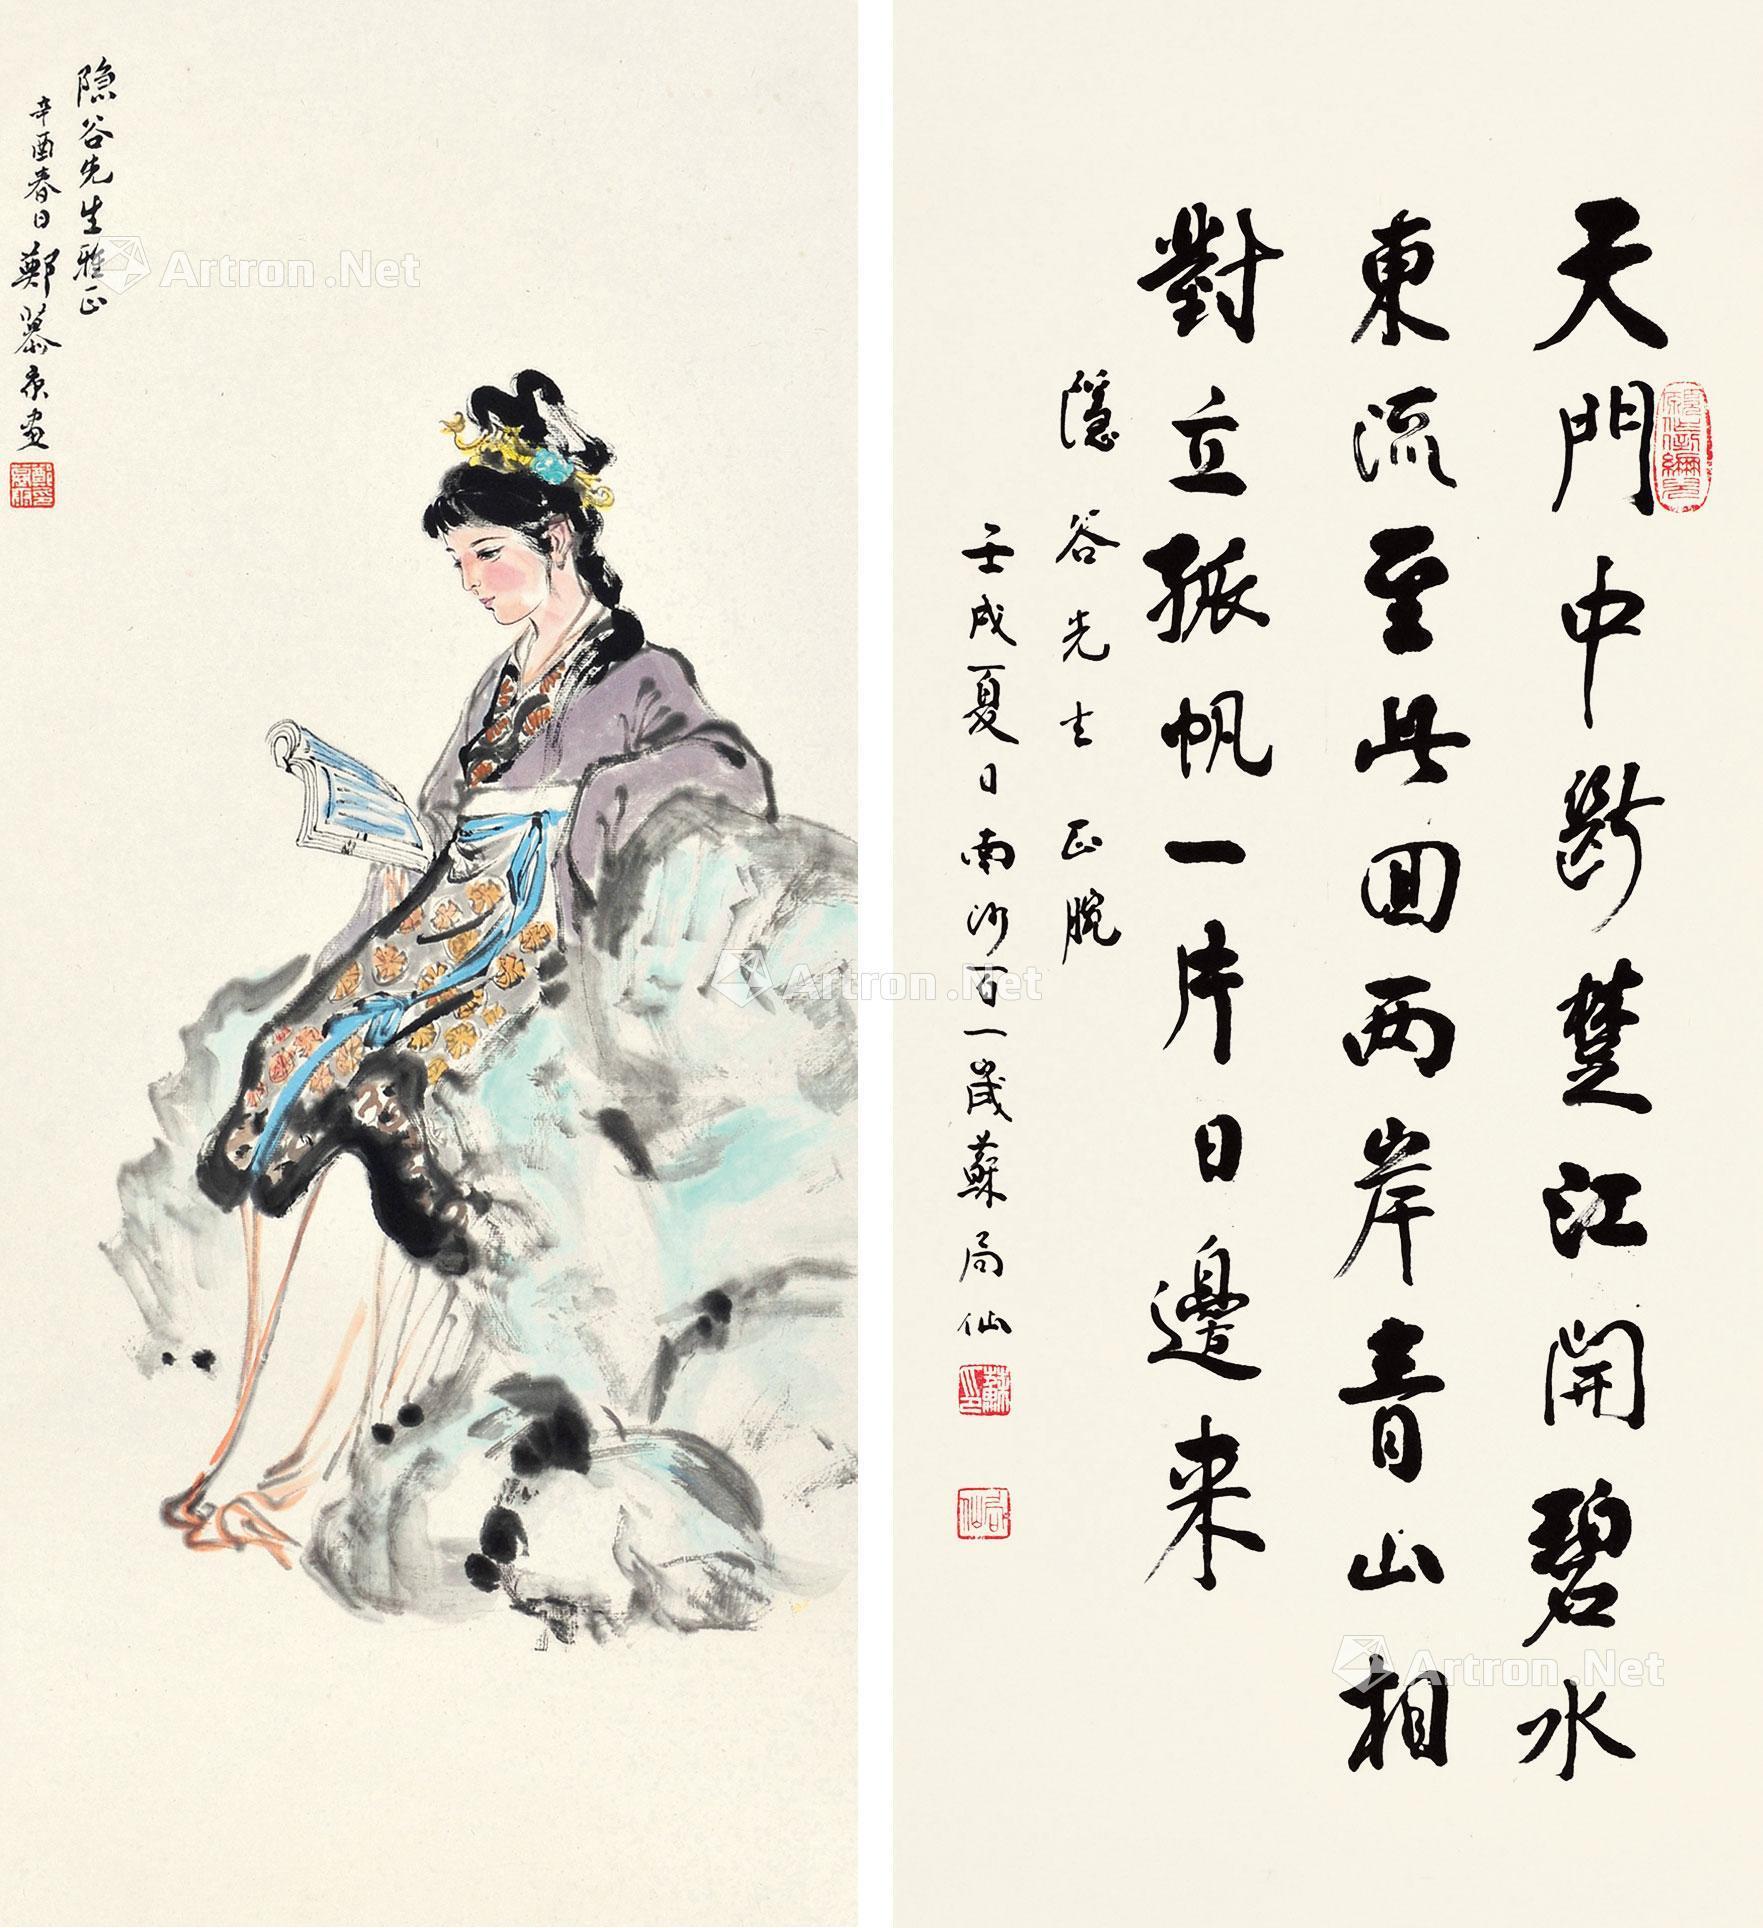 隐谷先生雅正
辛酉春日鄭慕康畫
天門中斷楚江開碧水
東流至此回两岸青山相
對立孤帆一片日邊来
隱谷先生正腕
壬戌夏日南沙百一歲蘇局仙
局仙
Artron.Net
Artron.Net
Artron.Net